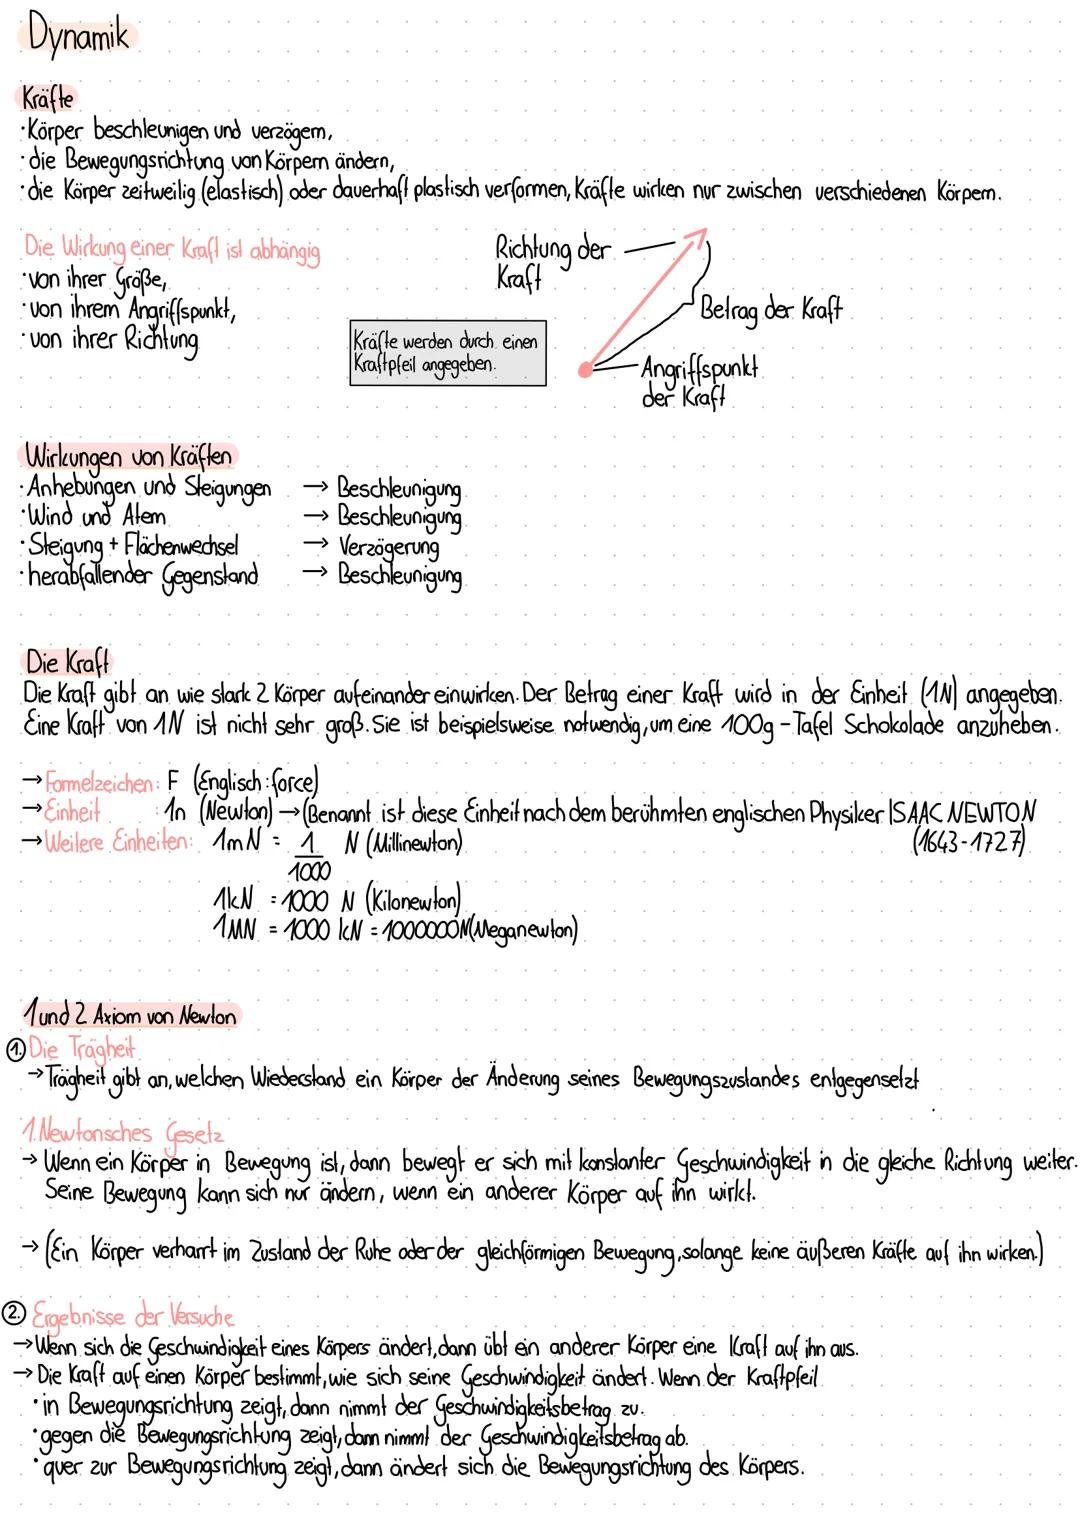 Dynamik
Kräfte
·Körper beschleunigen und verzögern,
·die Bewegungsrichtung von Körpern ändern,
·die Körper zeitweilig (elastisch) oder dauerhaft plastisch verformen, Kräfte wirken nur zwischen verschiedenen Körpern.
Die Wirkung einer Kraft ist abhängig
·von ihrer Größe,
·von ihrem Angriffspunkt,
·von ihrer Richtung
Kräfte werden durch einen
Kraftpfeil angegeben.
Richtung der
Kraft
Betrag der Kraft
Angriffspunkt
der Kraft
Wirkungen von Kräften
·Anhebungen und Steigungen → Beschleunigung
·Wind und Atem → Beschleunigung
·Steigung + Flächenwechsel → Verzögerung
·herabfallender Gegenstand → Beschleunigung
Die Kraft
Die Kraft gibt an wie stark 2 Körper aufeinander einwirken. Der Betrag einer Kraft wird in der Einheit (1N) angegeben.
Eine Kraft von 1N ist nicht sehr groß. Sie ist beispielsweise notwendig, um eine 100g - Tafel Schokolade anzuheben.
→ Formelzeichen: F (Englisch: force)
→ Einheit : 1n (Newton) → (Benannt ist diese Einheit nach dem berühmten englischen Physiker ISAAC NEWTON
(1643-1727)
→ Weitere Einheiten: 1mN = 1/1000 N (Millinewton)
1kN = 1000 N (Kilonewton)
1MN = 1000 kN = 1000000N (Meganewton)
1 und 2 Axiom von Newton
1. Die Trägheit
→ Trägheit gibt an, welchen Wiederstand ein Körper der Änderung seines Bewegungszustandes entgegensetzt
1. Newtonsches Gesetz
→ Wenn ein Körper in Bewegung ist, dann bewegt er sich mit konstanter Geschwindigkeit in die gleiche Richtung weiter.
Seine Bewegung kann sich nur ändern, wenn ein anderer Körper auf ihn wirkt.
→ (Ein Körper verharrt im Zustand der Ruhe oder der gleichförmigen Bewegung, solange keine äußeren Kräfte auf ihn wirken.)
2. Ergebnisse der Versuche
→ Wenn sich die Geschwindigkeit eines Körpers ändert, dann übt ein anderer Körper eine Kraft auf ihn aus.
→ Die Kraft auf einen Körper bestimmt, wie sich seine Geschwindigkeit ändert. Wenn der Kraftpfeil
·in Bewegungsrichtung zeigt, dann nimmt der Geschwindigkeitsbetrag zu.
·gegen die Bewegungsrichtung zeigt, dann nimmt der Geschwindigkeitsbetrag ab.
·quer zur Bewegungsrichtung zeigt, dann ändert sich die Bewegungsrichtung des Körpers.